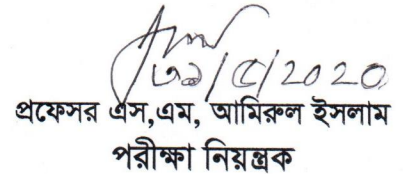 ৩১/৫/2020
প্রফেসর এস,এম, আমিরুল ইসলাম
পরীক্ষা নিয়ন্ত্রক